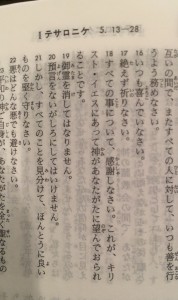 Ⅰテサロニケ 5. 13―28
互いの間で、またすべての人に対して、いつも善を行
うよう務めなさい。
16 いつも喜んでいなさい。
17 絶えず祈りなさい。
18 すべての事について、感謝しなさい。これが、キリ
スト・イエスにあって神があなたがたに望んでおられ
ることです。
19 御霊を消してはなりません。
20 預言をないがしろにしてはいけません。
21 しかし、すべてのことを見分けて、ほんとうに良い
ものを堅く守りなさい。
22 悪はどんな悪でも避けなさい。
平和の神ご自身が、あなたがたを全く聖なるもの